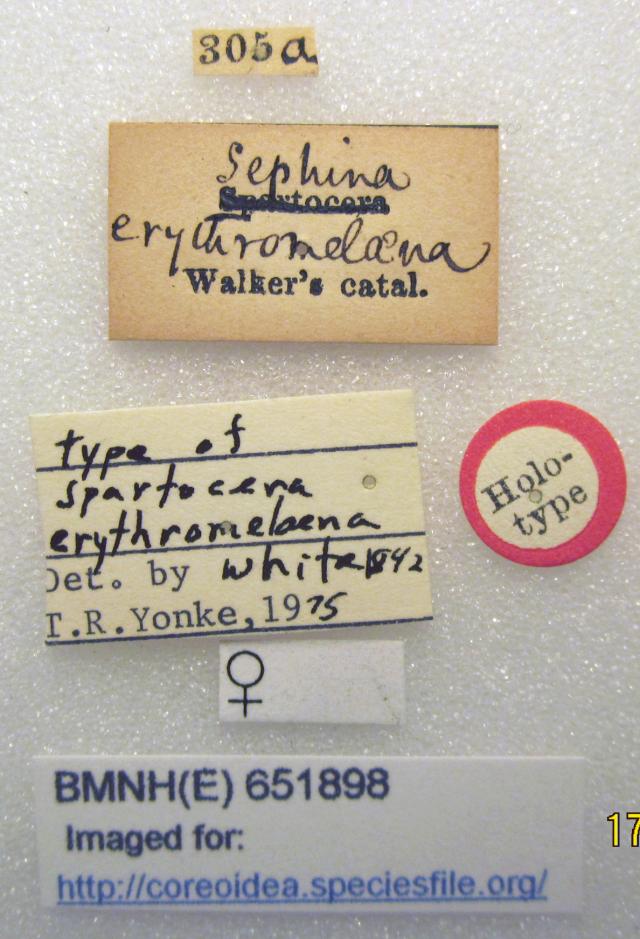 305a
Sephina
Spartocera
erythromelæna
Walker's catal.
type of
spartocera
erythromelaena
Det. by white 1842
T.R.Yonke, 1975
Holo-
type
♀
BMNH(E) 651898
Imaged for:
http://coreoidea.speciesfile.org/
17